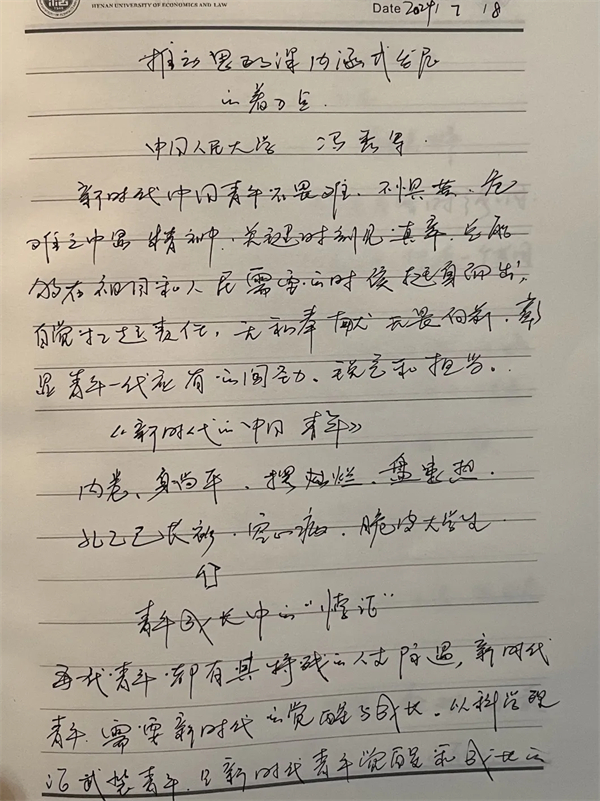 HENAN UNIVERSITY OF ECONOMICS AND LAW
Date 2024 1 7 18
推动思政课内涵式发展
的着力点.
中国人民大学 冯秀军.
新时代中国青年不畏难、不惧苦、危
难之中显精神,关键时刻见真章.总能
够在祖国和人民需要的时候挺身而出,
自觉扛起责任,无私奉献无畏向前,彰
显青年一代应有的闯劲、锐气和担当。
《新时代的中国青年》
内卷、身尚平、摆烂、
孔乙己长衫、空心病、脆皮大学生
青年成长中的"悖论"
每代青年都有其特殊的人生际遇,新时代
青年需要新时代的觉醒与成长。以科学理
论武装青年,是新时代青年觉醒和成长的